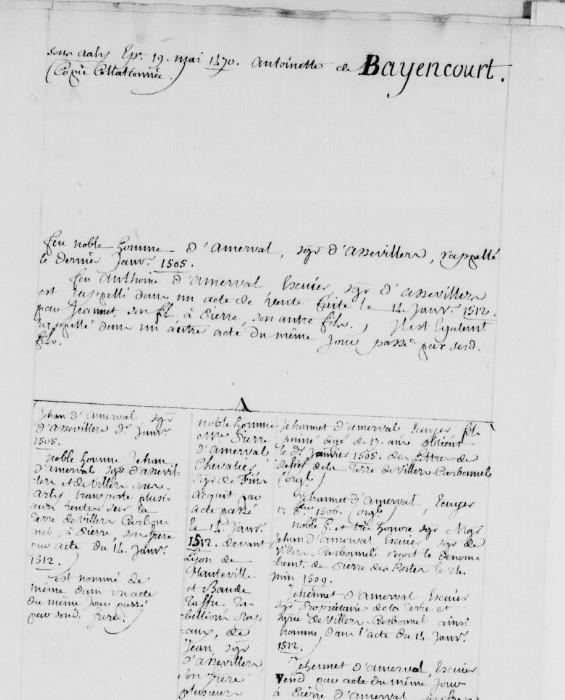 sous arly Ep. 19. mai 1570. Antoinette de Bayencourt.
(Copie Collationnée.)
feu noble homme d'Amerval, sgr d'assevillers, rappellé
le dernier Janvr. 1505.
feu Anthoine d'Amerval Escuier, sgr d'assevillers
est rappellé dans un acte de vente faite le 14 Janvr. 1512.
par Jeannet, son fils, à Pierre, son autre fils, Il est Egalement
rappellé dans un autre acte du même Jour passé par sesd.
fils.
A
Jehan d'Amerval sgr
d'assevillers Janvr
1505.
noble homme Jehan
d'Amerval sgr d'assevil-
lers et de villers sous
arly transporte plusi-
eurs rentes sur la
terre de villers
à Pierre, son frere
par acte du 14. Janvr.
1512.
est nommé de
même dans un acte
du même Jour passé
par sond. frere.
noble homme
Mre Pierre
d'Amerval
Chevalier,
sgr de
acquit par
acte passé
le 14 Janvr.
1512. devant
de
Hauteville
et Baude
ta-
bellions Roy-
aux, de
Jean sgr
d'assevillers
son frere
plusieurs
Jehannet d'amerval Escuyer, fils
puiné agé de 17. ans obtient
le Janvier 1505. des Lettres de
Relief de la Terre de villers Carbonnel
(orgl)
Jehannet d'Amerval, Escuyer
1506. (orgl)
noble h. et tres honoré sgr Mgr
Jehan d'Amerval Escuier, sgr de
villers Carbonnel reçoit le denom-
brent. de Pierre des le 24.
1509.
Jehennet d'Amerval Escuier
sgr Propriétaire de la Terre et
sgrie de villers-Carbonnel ainsi
nommé, dans l'acte du 14 Janvr.
1512.
Jehennet d'amerval, Escuier
Vend par acte du même Jour
à Pierre d'Amerval